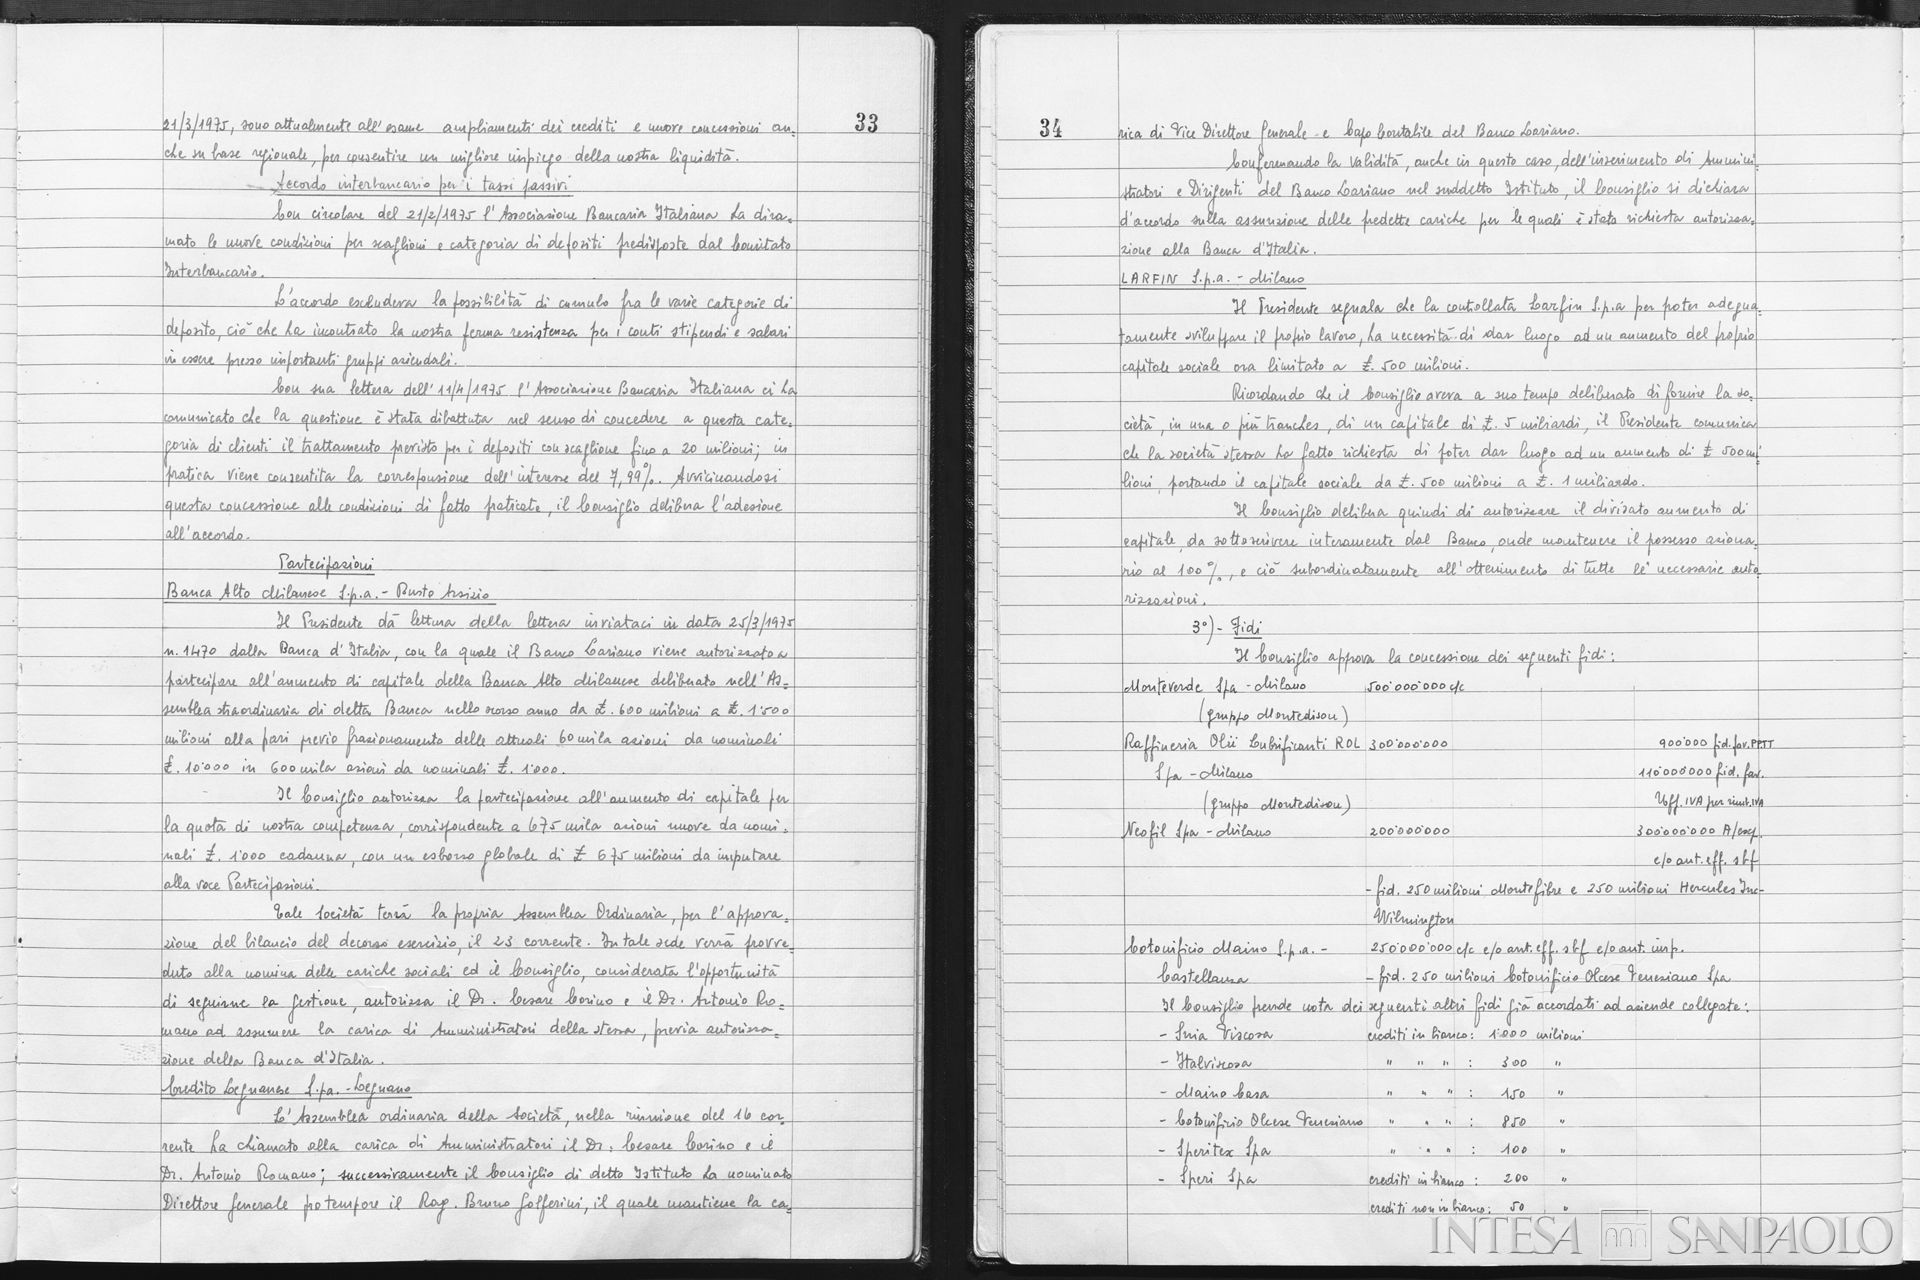 33
21/3/1975, sono attualmente all'esame ampliamenti dei crediti e nuove concessioni an=
che su base regionale, per consentire un migliore impiego della nostra liquidità.
Accordo interbancario per i tassi passivi
Con circolare del 21/2/1975 l'Associazione Bancaria Italiana ha dira=
mato le nuove condizioni per scaglioni e categoria di depositi predisposte dal Comitato
Interbancario.
L'accordo escludeva la possibilità di cumulo fra le varie categorie di
deposito, ciò che ha incontrato la nostra ferma resistenza per i conti stipendi e salari
in essere presso importanti gruppi aziendali.
Con sua lettera dell'11/4/1975 l'Associazione Bancaria Italiana ci ha
comunicato che la questione è stata dibattuta nel senso di concedere a questa cate=
goria di clienti il trattamento previsto per i depositi con scaglione fino a 20 milioni; in
pratica viene consentita la corresponsione dell'interesse del 7,99%. Avvicinandosi
questa concessione alle condizioni di fatto praticate, il Consiglio delibera l'adesione
all'accordo.
Partecipazioni
Banca Alto Milanese S.p.a. - Busto Arsizio
Il Presidente dà lettura della lettera inviataci in data 25/3/1975
n. 1470 dalla Banca d'Italia, con la quale il Banco Lariano viene autorizzato a
partecipare all'aumento di capitale della Banca Alto Milanese deliberato nell'As=
semblea straordinaria di detta Banca nello scorso anno da £. 600 milioni a £. 1'500
milioni alla pari previo frazionamento delle attuali 60 mila azioni da nominali
£. 10'000 in 600 mila azioni da nominali £. 1'000.
Il Consiglio autorizza la partecipazione all'aumento di capitale per
la quota di nostra competenza, corrispondente a 675 mila azioni nuove da nomi=
nali £. 1'000 cadauna, con un esborso globale di £ 675 milioni da imputare
alla voce Partecipazioni.
Tale Società terrà la propria Assemblea Ordinaria, per l'approva=
zione del bilancio del decorso esercizio, il 23 corrente. In tale sede verrà provve=
duto alla nomina delle cariche sociali ed il Consiglio, considerata l'opportunità
di seguirne la gestione, autorizza il Dr. Cesare Corino e il Dr. Antonio Ro=
mano ad assumere la carica di Amministratori della stessa, previa autorizza=
zione della Banca d'Italia.
Credito Legnanese S.pa. - Legnano
L'Assemblea ordinaria della Società, nella riunione del 16 cor=
rente ha chiamato alla carica di Amministratori il Dr. Cesare Corino e il
Dr. Antonio Romano; successivamente il Consiglio di detto Istituto ha nominato
Direttore Generale pro tempore il Rag. Bruno Gofferini, il quale mantiene la ca=
34
rica di Vice Direttore Generale e Capo Contabile del Banco Lariano.
Confermando la validità, anche in questo caso, dell'inserimento di Ammini=
stratori e Dirigenti del Banco Lariano nel suddetto Istituto, il Consiglio si dichiara
d'accordo sulla assunzione delle predette cariche per le quali è stata richiesta autorizza=
zione alla Banca d'Italia.
LARFIN S.p.a. - Milano
Il Presidente segnala che la controllata Larfin S.p.a per poter adegua=
tamente sviluppare il proprio lavoro, ha necessità di dar luogo ad un aumento del proprio
capitale sociale ora limitato a £. 500 milioni.
Ricordando che il Consiglio aveva a suo tempo deliberato di fornire la so=
cietà, in una o più tranches, di un capitale di £. 5 miliardi, il Presidente comunica
che la società stessa ha fatto richiesta di poter dar luogo ad un aumento di £ 500 mi=
lioni, portando il capitale sociale da £. 500 milioni a £. 1 miliardo.
Il Consiglio delibera quindi di autorizzare il divisato aumento di
capitale, da sottoscrivere interamente dal Banco, onde mantenere il possesso aziona=
rio al 100%, e ciò subordinatamente all'ottenimento di tutte le necessarie auto=
rizzazioni.
3°) - Fidi
Il Consiglio approva la concessione dei seguenti fidi:
Monteverde Spa - Milano 500'000'000 c/c
(gruppo Montedison)
Raffineria Olii Lubrificanti ROL 300'000'000 900'000 fid. fav. PP.TT
Spa - Milano 110'000'000 fid. fav.
(gruppo Montedison) Uff. IVA per rimb. IVA
Neofil Spa - Milano 200'000'000 300'000'000 A/esp.
c/o ant. eff. sbf
- fid. 250 milioni Montefibre e 250 milioni Hercules Inc-
Wilmington
Cotonificio Maino S.p.a. - 250'000'000 c/c c/o ant. eff. sbf c/o ant. imp.
Castellanza - fid. 250 milioni Cotonificio Olcese Veneziano Spa
Il Consiglio prende nota dei seguenti altri fidi già accordati ad aziende collegate:
- Snia Viscosa crediti in bianco: 1'000 milioni
- Italviscosa " " " : 300 "
- Maino Casa " " " : 150 "
- Cotonificio Olcese Veneziano " " " : 850 "
- Speritex Spa " " " : 100 "
- Speri Spa crediti in bianco: 200 "
crediti non in bianco: 50 "
INTESA SANPAOLO